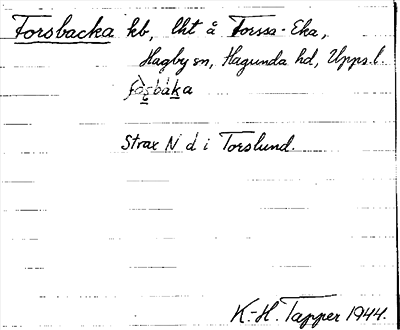 Forsbacka kb, lht å Forssa-Eka,
Hagby sn, Hagunda hd, Upps.l.
fòs̨bàka
Strax N d i Torslund.
K.-H. Tapper 1944.